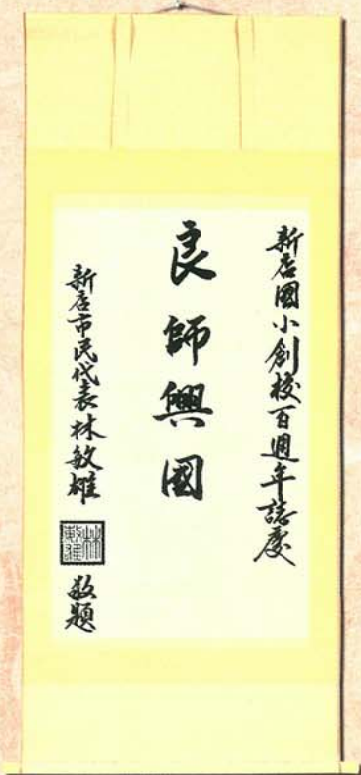 新店國小創校百週年誌慶
良師興國
新店市民代表林敏雄
林敏雄
敬題